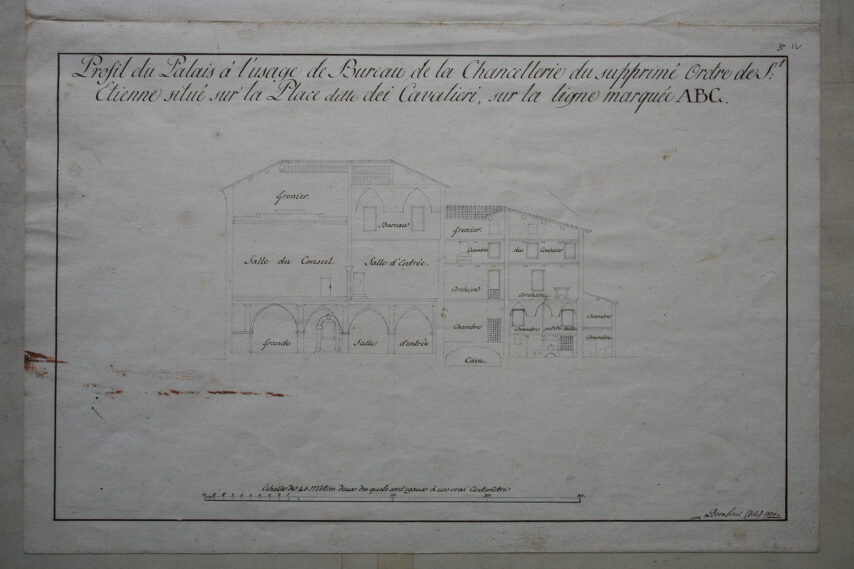 3 IV
Profil du Palais à l'usage de Bureau de la Chancellerie du supprimé Ordre de S.t
Etienne situé sur la Place ditte dei Cavalieri, sur la ligne marquée ABC.
Grenier.
Bureau
Grenier.
Chambre des Caissier
Salle du Conseil.
Salle d'Entrée.
Archive
Archive
Chambre
Chambre
Chambre
Chambre
Grande Salle d'entrée
Cave.
Echelle de 40 Mètres deux des quels sont egaux à un vrai Centimètre